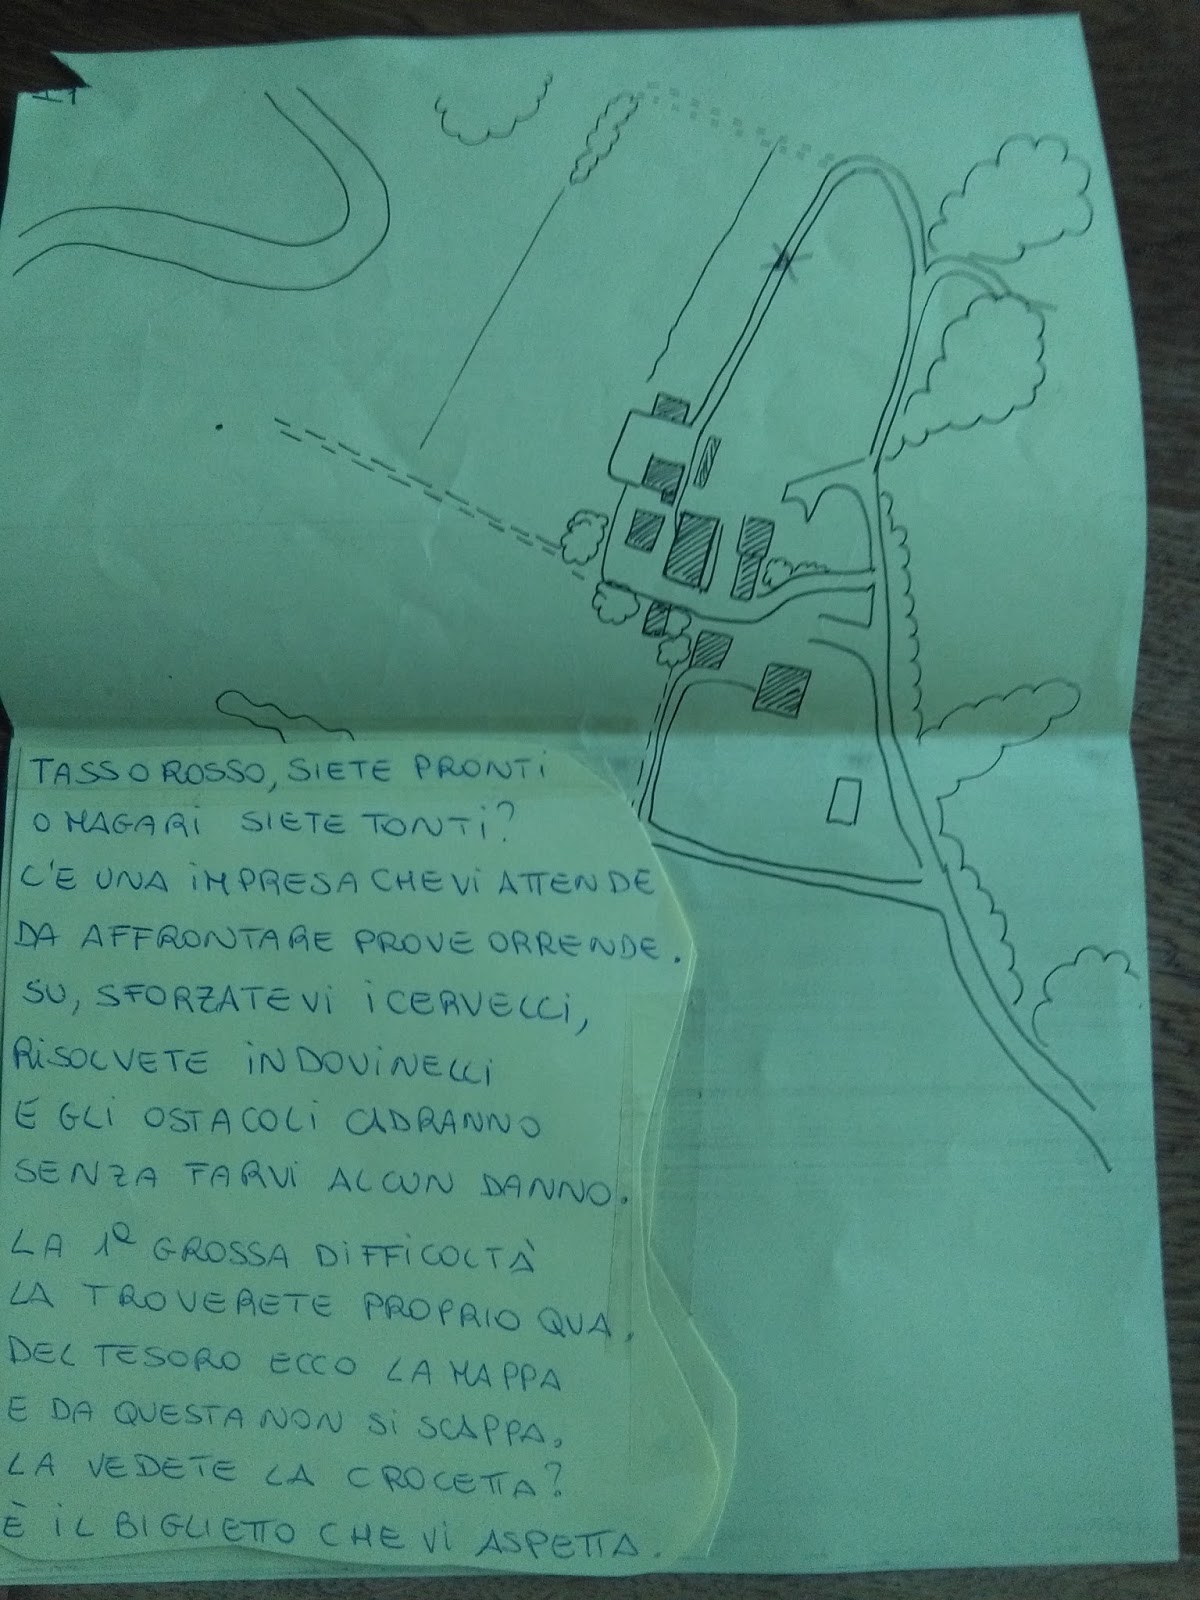 TASSOROSSO, SIETE PRONTI
O MAGARI SIETE TONTI?
C'E UNA IMPRESA CHE VI ATTENDE
DA AFFRONTARE PROVE ORRENDE.
SU, SFORZATEVI I CERVELLI,
RISOLVETE INDOVINELLI
E GLI OSTACOLI CADRANNO
SENZA FARVI ALCUN DANNO.
LA 1ª GROSSA DIFFICOLTÀ
LA TROVERETE PROPRIO QUA,
DEL TESORO ECCO LA MAPPA
E DA QUESTA NON SI SCAPPA,
LA VEDETE LA CROCETTA?
È IL BIGLIETTO CHE VI ASPETTA.